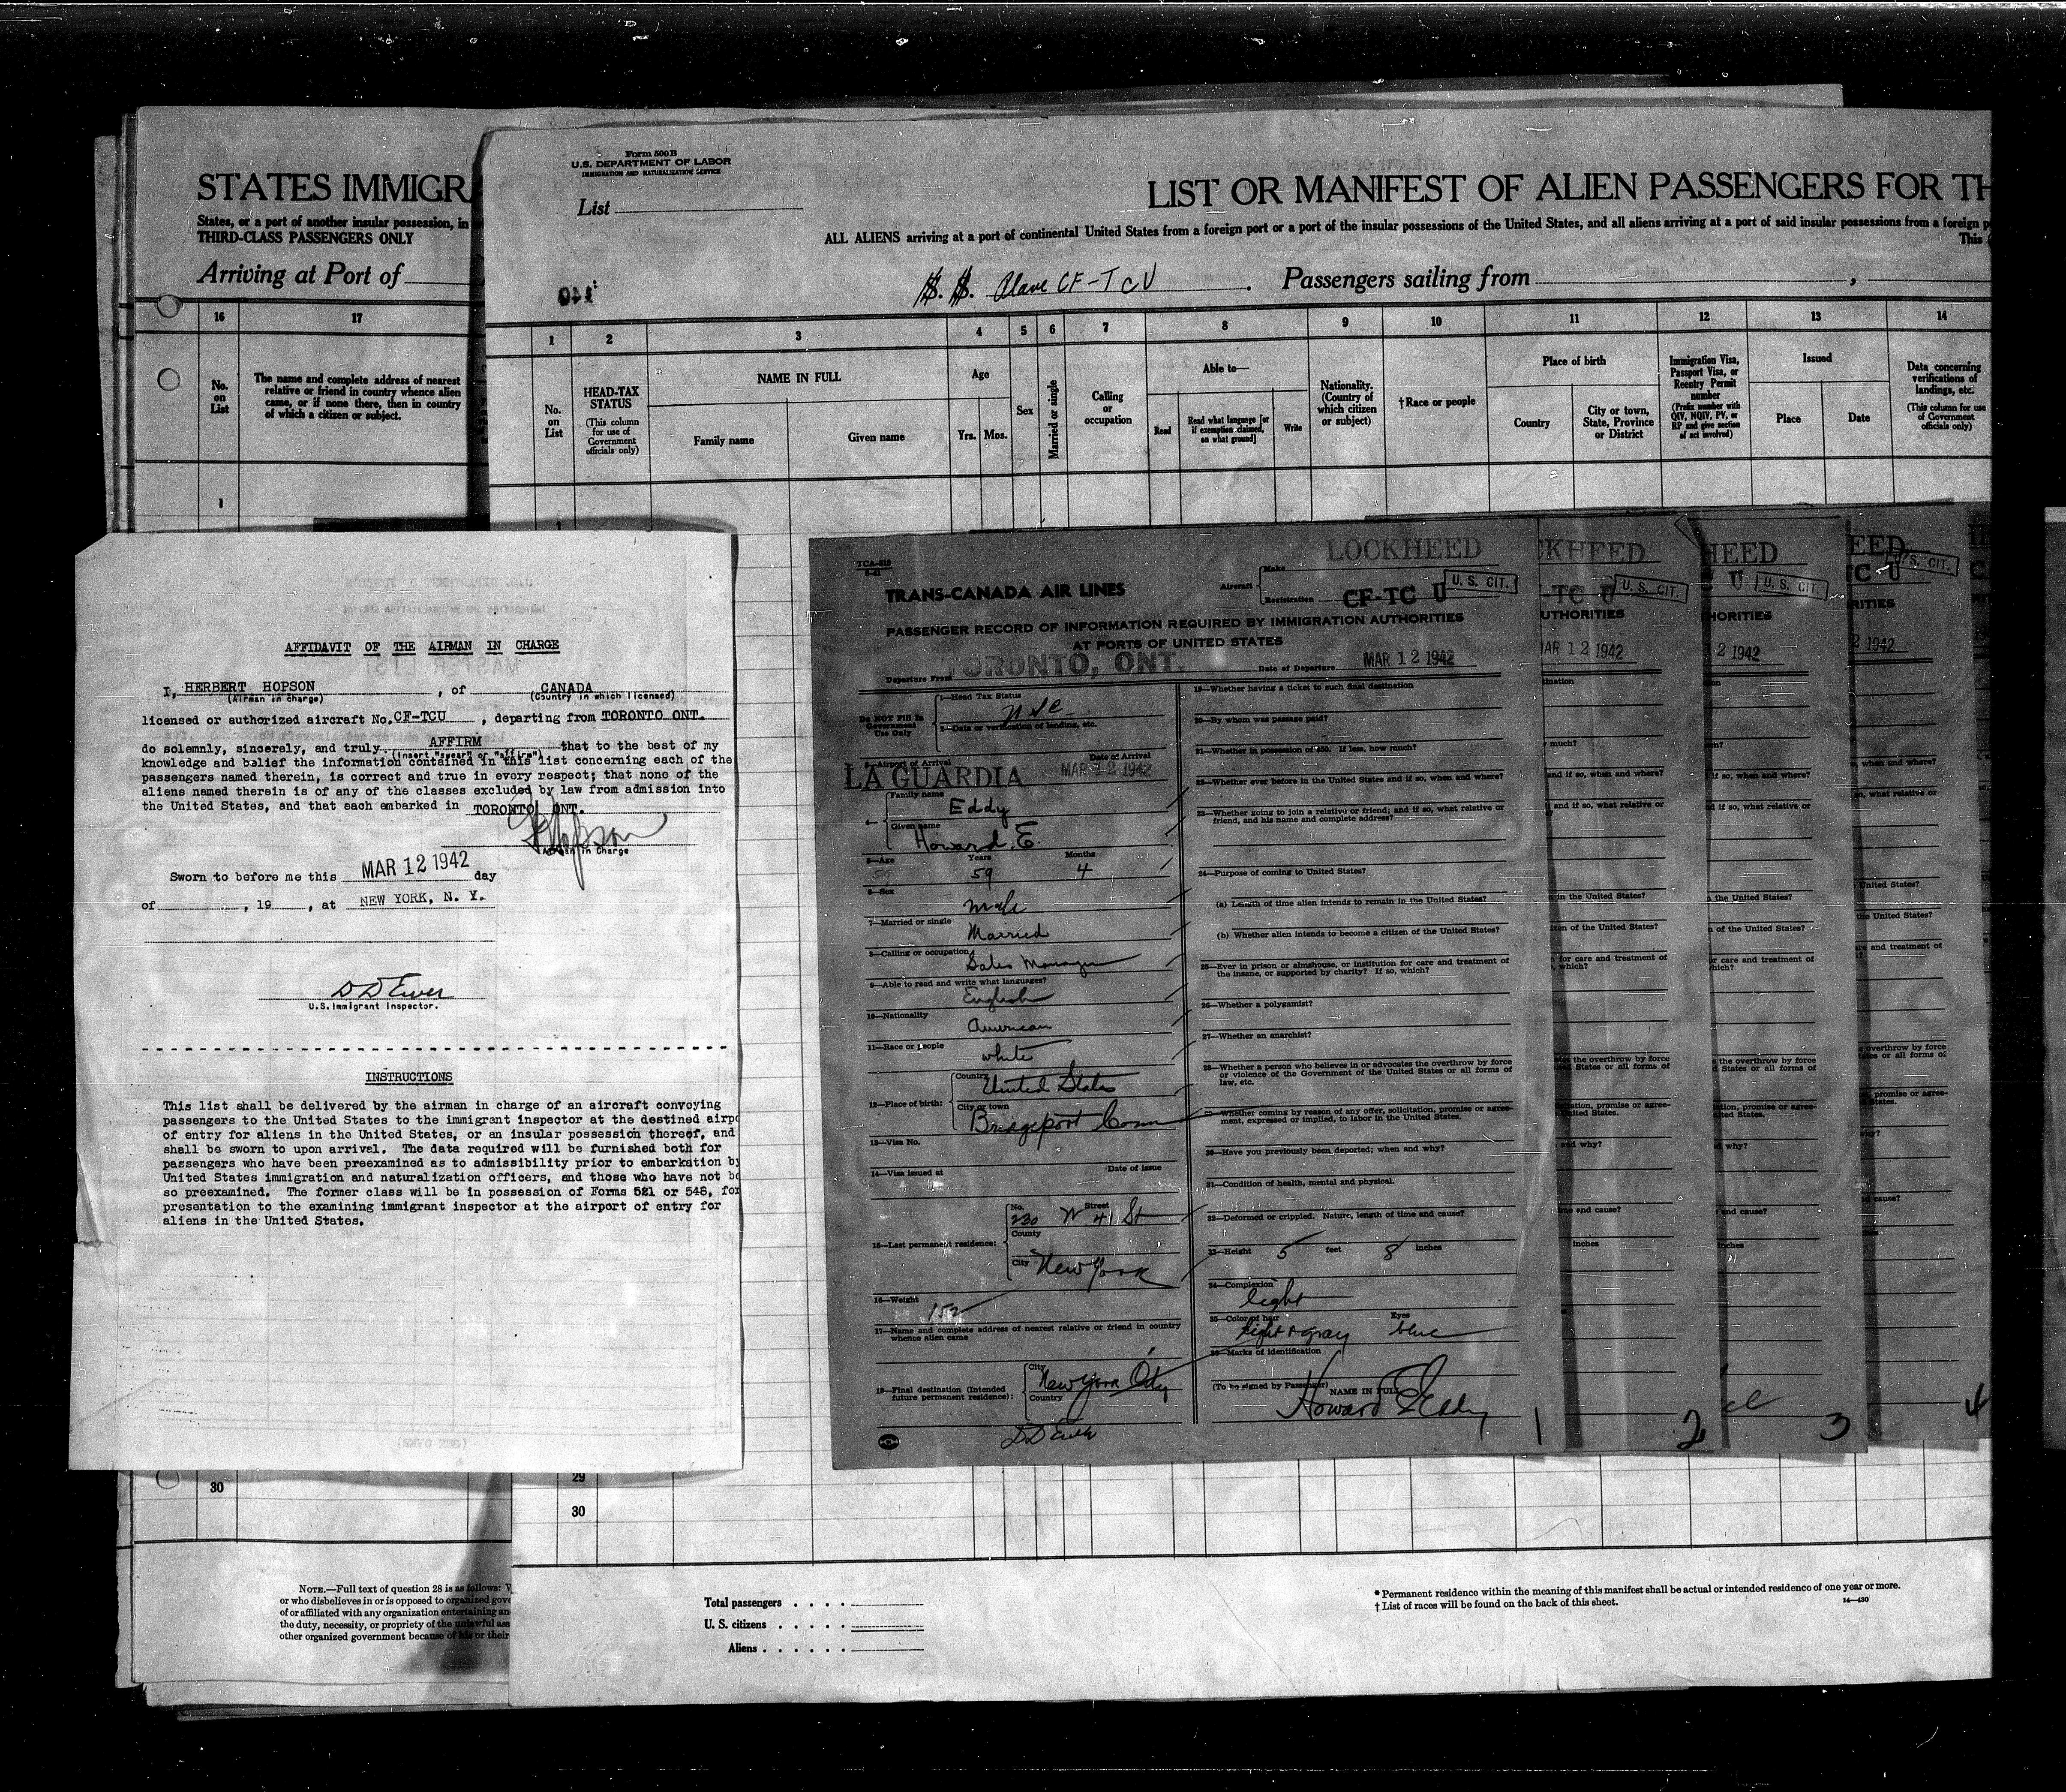 STATES IMMIGRA
States, or a port of another insular possession, in
THIRD-CLASS PASSENGERS ONLY
Arriving at Port of
16
17
No.
on
List
The name and complete address of nearest
relative or friend in country whence alien
came, or if none there, then in country
of which a citizen or subject.
1
30
NOTE.—Full text of question 28 is as follows: W
or who disbelieves in or is opposed to organized gove
of or affiliated with any organization entertaining an
the duty, necessity, or propriety of the unlawful ass
other organized government because of his or their
Form 500 B
U.S. DEPARTMENT OF LABOR
IMMIGRATION AND NATURALIZATION SERVICE
List
LIST OR MANIFEST OF ALIEN PASSENGERS FOR TH
ALL ALIENS arriving at a port of continental United States from a foreign port or a port of the insular possessions of the United States, and all aliens arriving at a port of said insular possessions from a foreign p
This
S. S. Plane CF-TCU . Passengers sailing from ,
1
2
3
4
5
6
7
8
9
10
11
12
13
14
No.
on
List
HEAD-TAX
STATUS
(This column
for use of
Government
officials only)
NAME IN FULL
Family name
Given name
Age
Yrs.
Mos.
Sex
Married or single
Calling
or
occupation
Able to—
Read
Read what language [or
if exemption claimed,
on what ground]
Write
Nationality.
(Country of
which citizen
or subject)
†Race or people
Place of birth
Country
City or town,
State, Province
or District
Immigration Visa,
Passport Visa, or
Reentry Permit
number
(Prefix number with
QIV, NQIV, PV, or
RP and give section
of act involved)
Issued
Place
Date
Data concerning
verifications of
landings, etc.
(This column for use
of Government
officials only)
29
30
Total passengers . . . .
U. S. citizens . . . . .
Aliens . . . . . .
* Permanent residence within the meaning of this manifest shall be actual or intended residence of one year or more.
† List of races will be found on the back of this sheet.
14—430
AFFIDAVIT OF THE AIRMAN IN CHARGE
I, HERBERT HOPSON , of CANADA
(Airman in charge) (Country in which licensed)
licensed or authorized aircraft No. CF-TCU , departing from TORONTO ONT.
do solemnly, sincerely, and truly AFFIRM that to the best of my
(insert "swear" or "affirm")
knowledge and belief the information contained in this list concerning each of the
passengers named therein, is correct and true in every respect; that none of the
aliens named therein is of any of the classes excluded by law from admission into
the United States, and that each embarked in TORONTO ONT.
H Hopson
Airman in Charge
Sworn to before me this MAR 12 1942 day
of , 19 , at NEW YORK, N. Y.
D D Ewer
U.S. Immigrant Inspector.
INSTRUCTIONS
This list shall be delivered by the airman in charge of an aircraft convoying
passengers to the United States to the immigrant inspector at the destined airpo
of entry for aliens in the United States, or an insular possession thereof, and
shall be sworn to upon arrival. The data required will be furnished both for
passengers who have been preexamined as to admissibility prior to embarkation by
United States immigration and naturalization officers, and those who have not be
so preexamined. The former class will be in possession of Forms 521 or 548, for
presentation to the examining immigrant inspector at the airport of entry for
aliens in the United States.
TRANS-CANADA AIR LINES
Aircraft
Make LOCKHEED
Registration CF-TC U
U. S. CIT.
PASSENGER RECORD OF INFORMATION REQUIRED BY IMMIGRATION AUTHORITIES
AT PORTS OF UNITED STATES
Departure From TORONTO, ONT.
Date of Departure MAR 12 1942
Do NOT Fill In
Government
Use Only
1—Head Tax Status
2—Data or verification of landing, etc.
3—Airport of Arrival LA GUARDIA
Date of Arrival MAR 12 1942
4—
Family name Eddy
Given name Howard. E.
5—Age Years 59 Months 4
6—Sex male
7—Married or single Married
8—Calling or occupation Sales Manager
9—Able to read and write what languages? English
10—Nationality American
11—Race or people white
12—Place of birth: Country United States
City or town Bridgeport Conn
13—Visa No.
14—Visa issued at Date of issue
15—Last permanent residence: No. 230 W 41 St Street
County
City New York
16—Weight 152
17—Name and complete address of nearest relative or friend in country
whence alien came
18—Final destination (Intended
future permanent residence):
City New York City
Country
19—Whether having a ticket to such final destination
20—By whom was passage paid?
21—Whether in possession of $50. If less, how much?
22—Whether ever before in the United States and if so, when and where?
23—Whether going to join a relative or friend; and if so, what relative or
friend, and his name and complete address?
24—Purpose of coming to United States?
(a) Length of time alien intends to remain in the United States?
(b) Whether alien intends to become a citizen of the United States?
25—Ever in prison or almshouse, or institution for care and treatment of
the insane, or supported by charity? If so, which?
26—Whether a polygamist?
27—Whether an anarchist?
28—Whether a person who believes in or advocates the overthrow by force
or violence of the Government of the United States or all forms of
law, etc.
29—Whether coming by reason of any offer, solicitation, promise or agree-
ment, expressed or implied, to labor in the United States.
30—Have you previously been deported; when and why?
31—Condition of health, mental and physical.
32—Deformed or crippled. Nature, length of time and cause?
33—Height 5 feet 8 inches
34—Complexion light
35—Color of hair light & gray Eyes blue
36—Marks of identification
(To be signed by Passenger) NAME IN FULL
Howard E Eddy
1
2
3
4